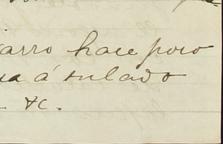 arro hace poco
a á su lado
&c.